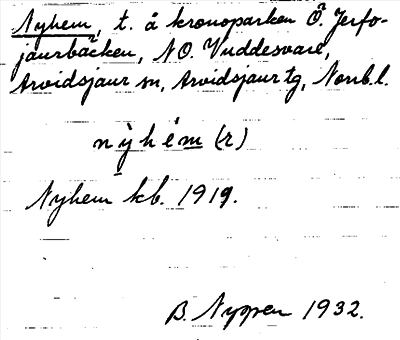 Nyhem, t. å kronoparken Ö. Jerfo-
jaurbäcken, NO. Vuddesvare,
Arvidsjaur sn, Arvidsjaur tg, Norrb. l.
nỳhé̱m (r)
Nyhem kb. 1919.
B. Nyppen 1932.